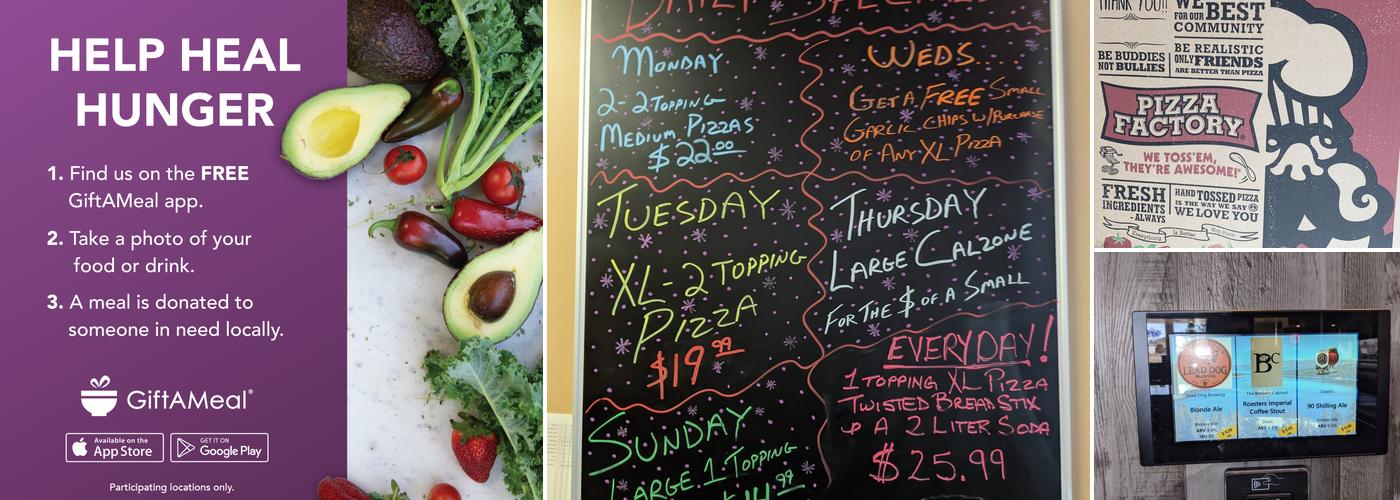 HELP HEAL
HUNGER
1. Find us on the FREE
GiftAMeal app.
2. Take a photo of your
food or drink.
3. A meal is donated to
someone in need locally.
GiftAMeal®
Available on the
App Store
GET IT ON
Google Play
Participating locations only.
DAILY SPECIALS
MONDAY
2-2 TOPPING
MEDIUM PIZZAS
$22.00
WEDS...
GET A FREE SMALL
GARLIC CHIPS W/PURCHASE
OF ANY XL PIZZA
TUESDAY
XL-2 TOPPING
PIZZA
$19.99
THURSDAY
LARGE CALZONE
FOR THE $ OF A SMALL
SUNDAY
LARGE 1 TOPPING
EVERYDAY!
1 TOPPING XL PIZZA
TWISTED BREADSTIX
& A 2 LITER SODA
$25.99
THANK YOU!!
WE
FOR OUR BEST
COMMUNITY
BE BUDDIES
NOT BULLIES
BE REALISTIC
ONLY FRIENDS
ARE BETTER THAN PIZZA
PIZZA
FACTORY
WE TOSS'EM,
THEY'RE AWESOME!®
FRESH
INGREDIENTS
- ALWAYS
HAND TOSSED PIZZA
IS THE WAY WE SAY
WE LOVE YOU
Everything Is Better With Pizza
LEAD DOG
BREWING
Lead Dog Brewing
Blonde Ale
Blonde Ale
BC
The Brewer's Cabinet
Roasters Imperial
Coffee Stout
Stout
Odell's
90 Shilling Ale